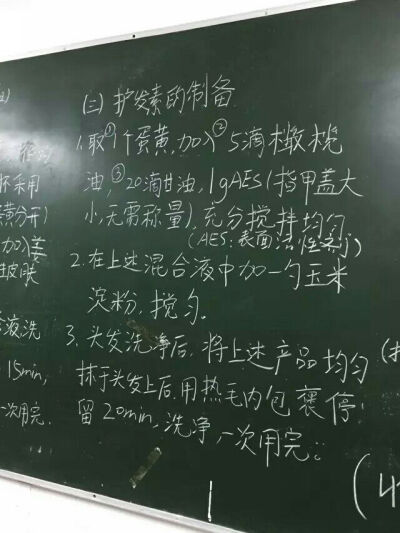 (二) 护发素的制备
1. 取①1个蛋黄,加入②5滴橄榄
油,③20滴甘油,1gAES(指甲盖大
小,无需称量),充分搅拌均匀
(AES:表面活性剂)
2. 在上述混合液中加一勺玉米
淀粉,搅匀.
3. 头发洗净后,将上述产品均匀
抹于头发上后,用热毛巾包裹停
留20min,洗净,一次用完.
杯采用
黄分开)
加入姜
皮肤
液洗
15min,
次用完.